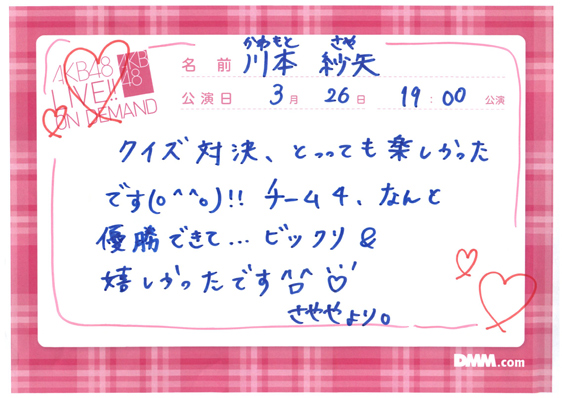 AKB48
LIVE!!
ON DEMAND
AKB
48
かわもと さや
名前 川本 紗矢
公演日 3月 26日 19:00 公演
クイズ対決、とっっても楽しかった
です(o^^o)!! チーム4、なんと
優勝できて...ビックリ&
嬉しかったです^ロ^
さややより。
DMM.com